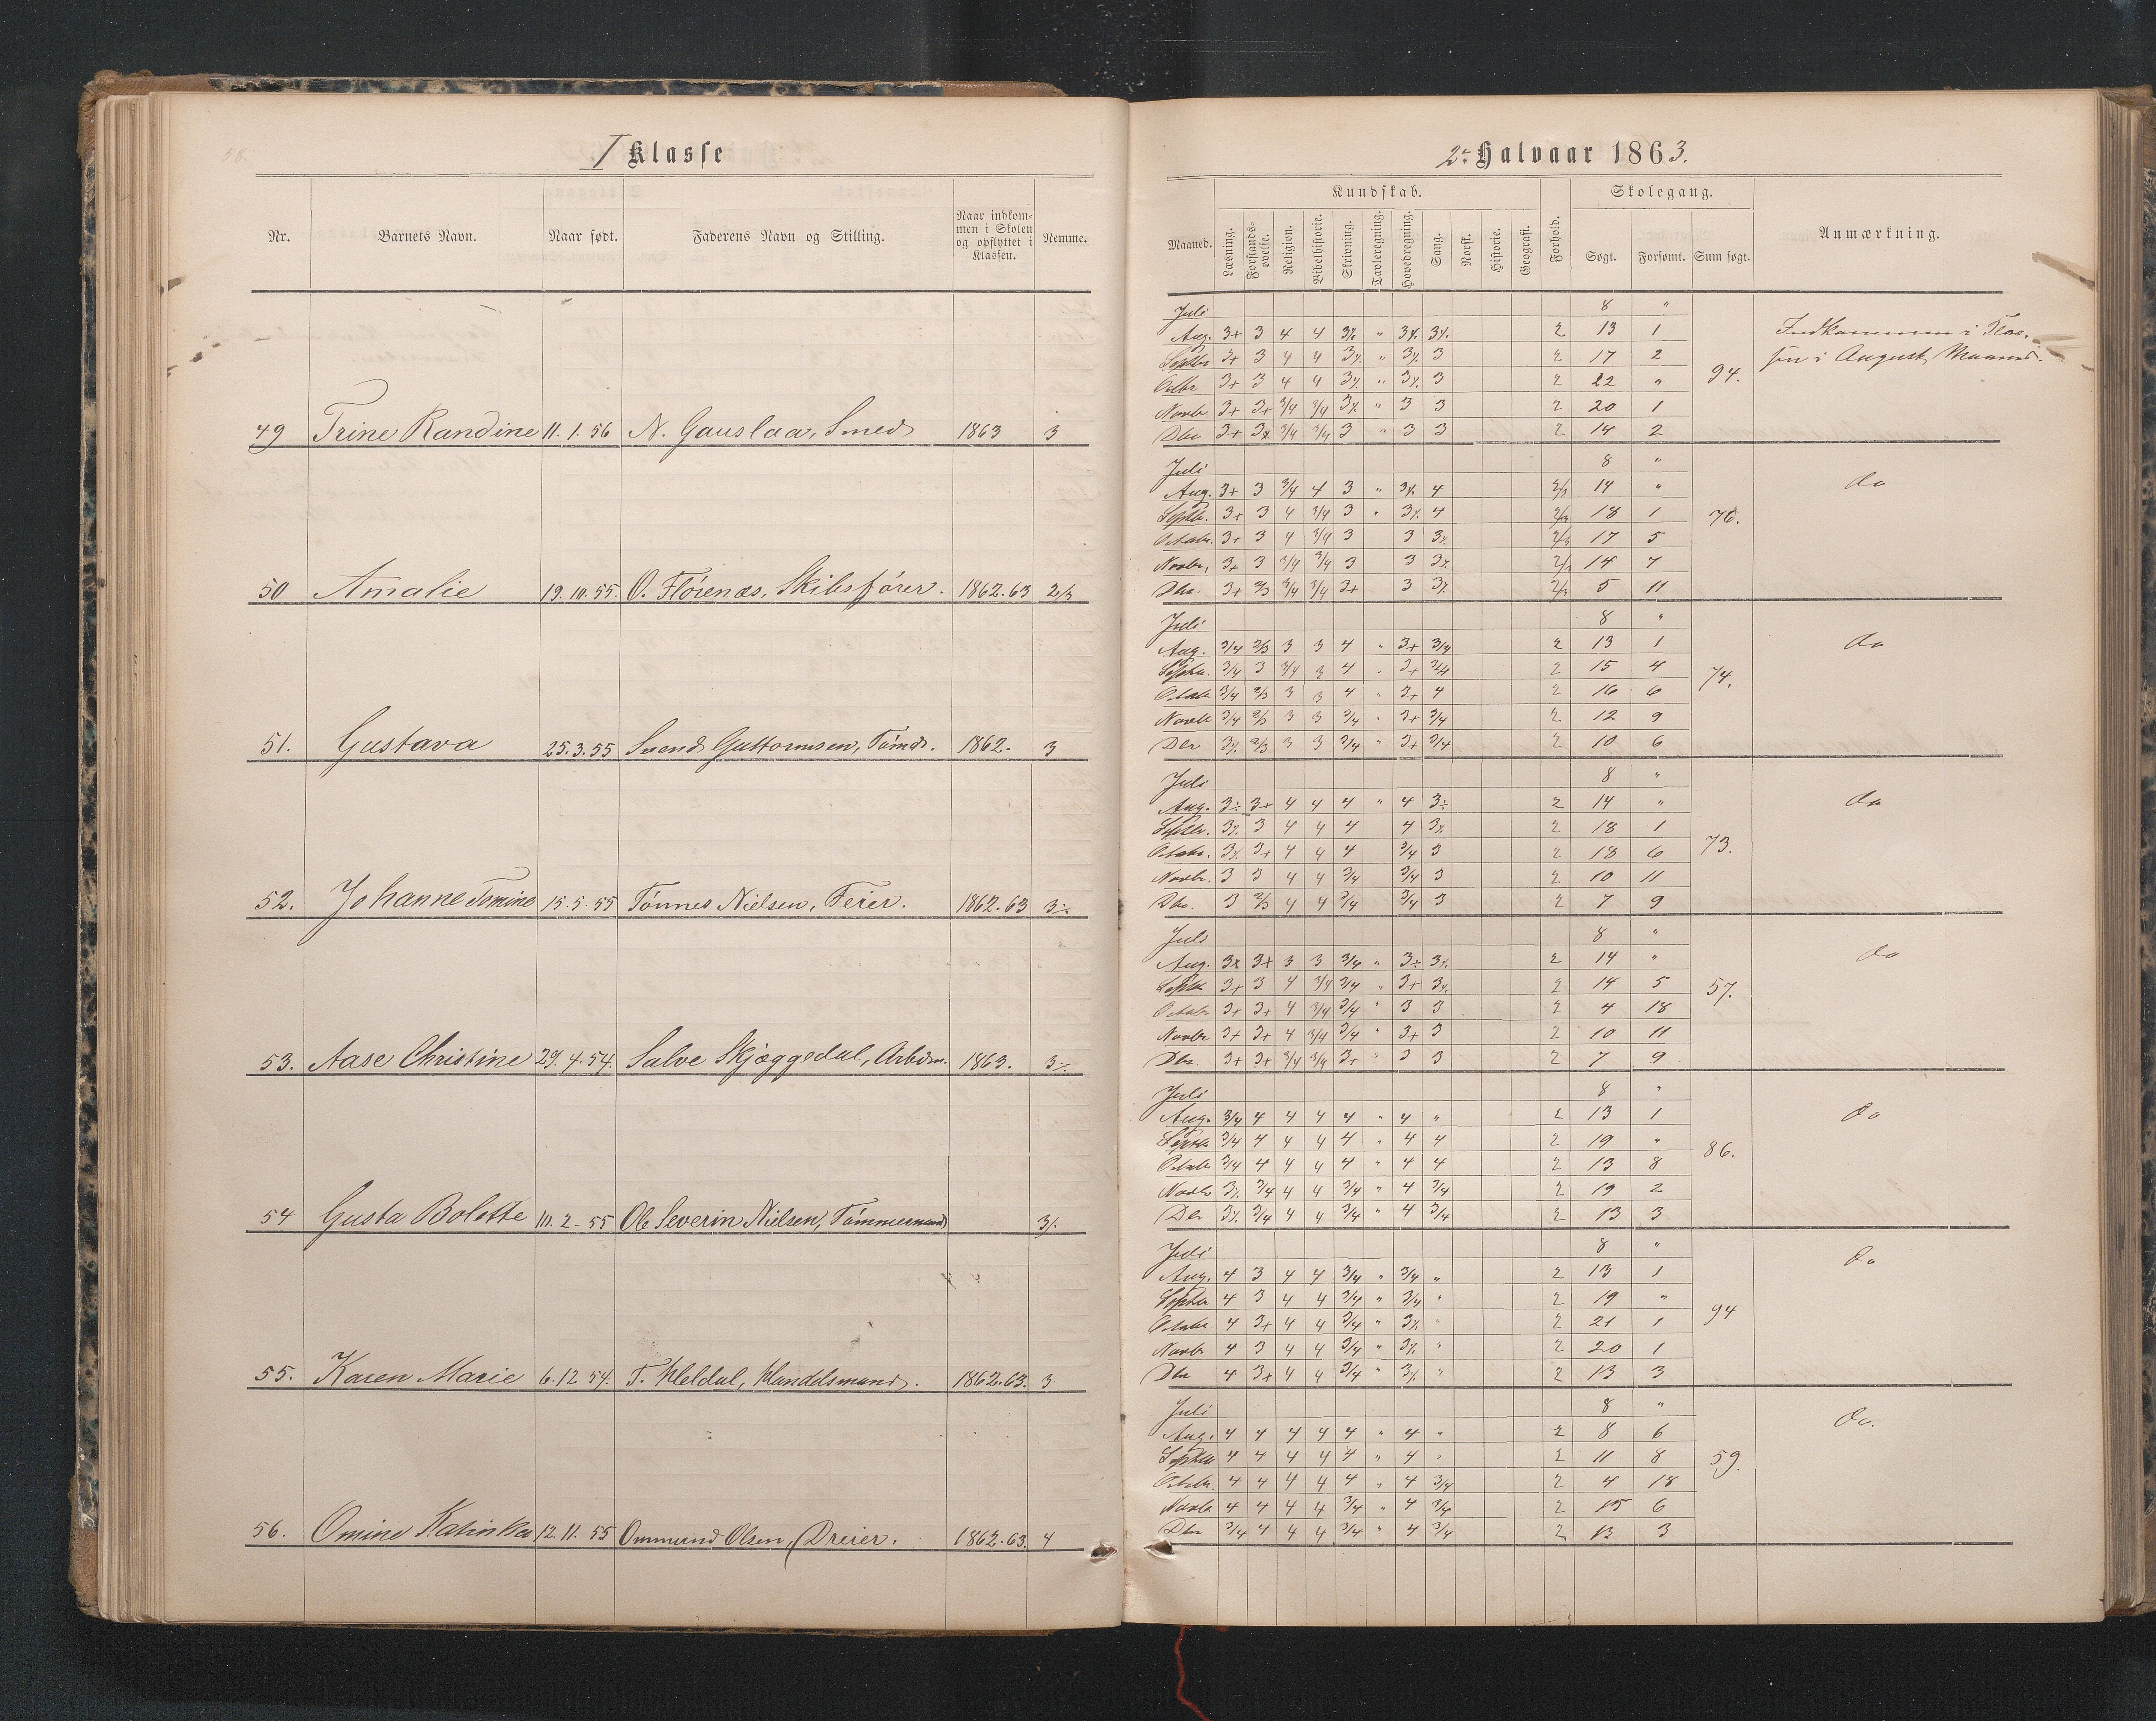 58.
I Klasse
Nr. Barnets Navn. Naar født. Faderens Navn og Stilling. Naar indkommen i Skolen og opflyttet i Klassen. Nemme.
49 Trine Randine 11.1.56 N. Gauslaa, Smed 1863 3
50 Amalie 19.10.55. O. Flørenæs, Skibsfører. 1862.63 2/3
51. Gustava 25.3.55 Svend Guttormsen, Tømdr. 1862. 3
52. Johanne Tomine 15.5.55 Tønnes Nielsen, Feier. 1862.63 3÷
53. Aase Christine 29.4.54. Salve Skjæggedal, Arbdsm. 1863. 3÷
54 Gusta Bolette 10.2-55 Ole Severin Nielsen, Tømmermand 3÷
55. Karen Marie 6.12 54. T. Heldal, Handelsmand. 1862.63. 3
56. Omine Katinka 12.11.55 Ommund Olsen, Dreier. 1862.63. 4
2det Halvaar 1863.
Kundskab. Skolegang.
Maaned. Læsning. Forstandsøvelse. Religion. Bibelhistorie. Skrivning. Tavleregning. Hovedregning. Sang. Norsk. Historie. Geografi. Forhold. Søgt. Forsømt. Sum søgt. Anmærkning.
Juli 8 "
Aug. 3+ 3 4 4 3÷ " 3÷ 3÷ 2 13 1 Indkommen i Klas-
Septbr 3+ 3 4 4 3÷ " 3÷ 3 2 17 2 sen i August Maaned.
Octbr 3+ 3 4 4 3÷ " 3÷ 3 2 22 " 94.
Novbr 3+ 3+ 3/4 3/4 3÷ " 3 3 2 20 1
Dbr 3+ 3+ 3/4 3/4 3 " 3 3 2 14 2
Juli 8 "
Aug. 3+ 3 3/4 4 3 " 3÷ 4 2/3 14 " do
Septbr. 3+ 3 4 3/4 3 " 3÷ 4 2/3 18 1 76.
Octobr. 3+ 3 4 3/4 3 3 3÷ 2/3 17 5
Novbr. 3+ 3 3/4 3/4 3 3 3÷ 2/3 14 7
Dbr. 3+ 2/3 3/4 3/4 3+ 3 3÷ 2/3 5 11
Juli 8 "
Aug. 3/4 2/3 3 3 4 " 3+ 3/4 2 13 1 do
Septbr. 3/4 3 3/4 3 4 " 3+ 3/4 2 15 4 74.
Octobr 3/4 2/3 3 3 4 " 3+ 4 2 16 6
Novbr 3/4 2/3 3 3 3/4 " 3+ 3/4 2 12 9
Dbr 3÷ 2/3 3 3 3/4 " 3+ 3/4 2 10 6
Juli 8 "
Aug. 3÷ 3+ 4 4 4 " 4 3÷ 2 14 " do
Septbr. 3÷ 3 4 4 4 4 3÷ 2 18 1 73.
Octobr. 3÷ 3+ 4 4 4 3/4 3 2 18 6
Novbr. 3 3 4 4 3/4 3/4 3 2 10 11
Dbr. 3 2/3 4 4 3/4 3/4 3 2 7 9
Juli 8 "
Aug. 3+ 3+ 3 3 3/4 " 3÷ 3÷ 2 14 " do
Septbr 3+ 3 4 3/4 3/4 " 3+ 3÷ 2 14 5 57.
Octobr 3+ 3+ 4 3/4 3/4 " 3 3 2 4 18
Novbr 3+ 3+ 4 3/4 3/4 " 3+ 3 2 10 11
Dbr. 3+ 3+ 3/4 3/4 3+ " 3 3 2 7 9
Juli 8 "
Aug. 3/4 4 4 4 4 " 4 " 2 13 1 do
Septbr 3/4 4 4 4 4 " 4 4 2 19 " 86.
Octobr 3/4 4 4 4 4 " 4 4 2 13 8
Novbr 3÷ 3/4 4 4 3/4 " 4 3/4 2 19 2
Dbr 3÷ 3/4 4 4 3/4 " 4 3/4 2 13 3
Juli 8 "
Aug. 4 3 4 4 3/4 " 3/4 " 2 13 1 do
Septbr 4 3 4 4 3/4 " 3/4 " 2 19 " 94
Octobr 4 3+ 4 4 3/4 " 3÷ " 2 21 1
Novbr 4 3 4 4 3/4 " 3÷ " 2 20 1
Dbr 4 3+ 4 4 3/4 " 3÷ " 2 13 3
Juli 8 "
Aug. 4 4 4 4 4 " 4 " 2 8 6 do.
Septbr 4 4 4 4 4 " 4 " 2 11 8 59.
Octobr. 4 4 4 4 4 " 4 3/4 2 4 18
Novbr 4 4 4 4 3/4 " 4 3/4 2 15 6
Dbr 3/4 4 4 4 3/4 " 4 3/4 2 13 3